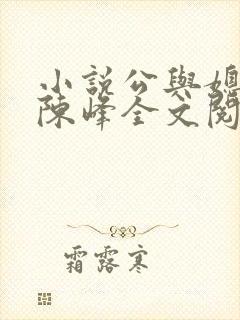 小說公與媳
陳峰全文閱
霜露寒